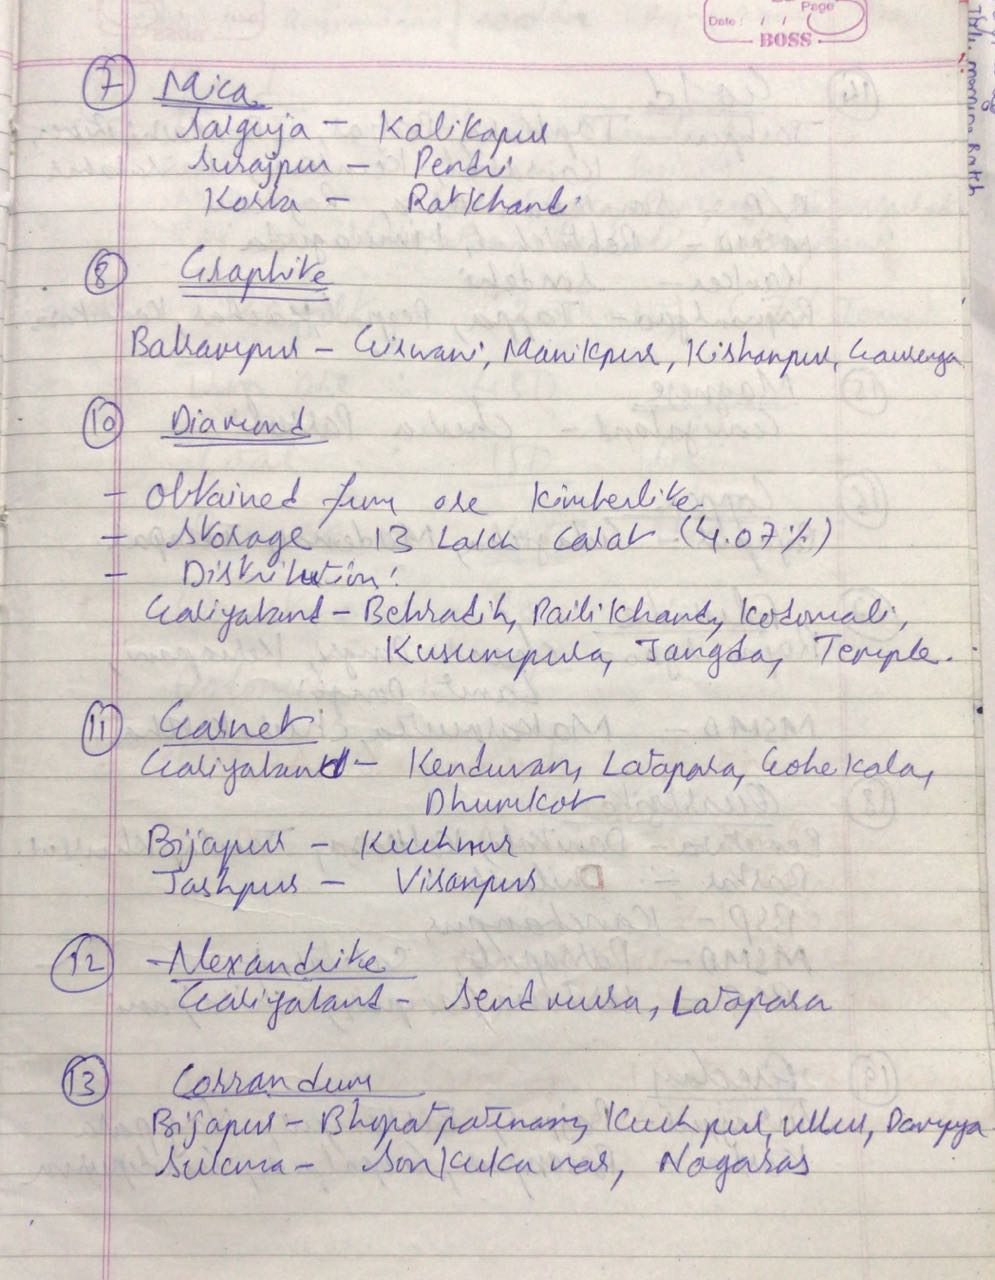 Date: / / Page
BOSS
7 Mica
Sarguja - Kalikapur
Surajpur - Pendri
Korba - Ratkhandi
8 Graphite
Balrampur - Girwani, Manikpur, Kishanpur, Gaurenga
10 Diamond
- Obtained from ore Kimberlite.
- Storage 13 Lakh Carat (4.07%)
- Distribution:
Gariyaband - Behradih, Pailikhand, Kodomali,
Kusumpura, Jangda, Temple.
11 Garnet
Gariyaband - Kenduvan, Latapara, Gohekala,
Dhumkot
Bijapur - Kuchnur
Jashpur - Visanpur
12 - Alexandrite
Gariyaband - Sendmura, Latapara
13 Corrandum
Bijapur - Bhopatpatnam, Kuchnur, Ullur,
Sukma - Sonkukanar, Nagaras
morning Batch